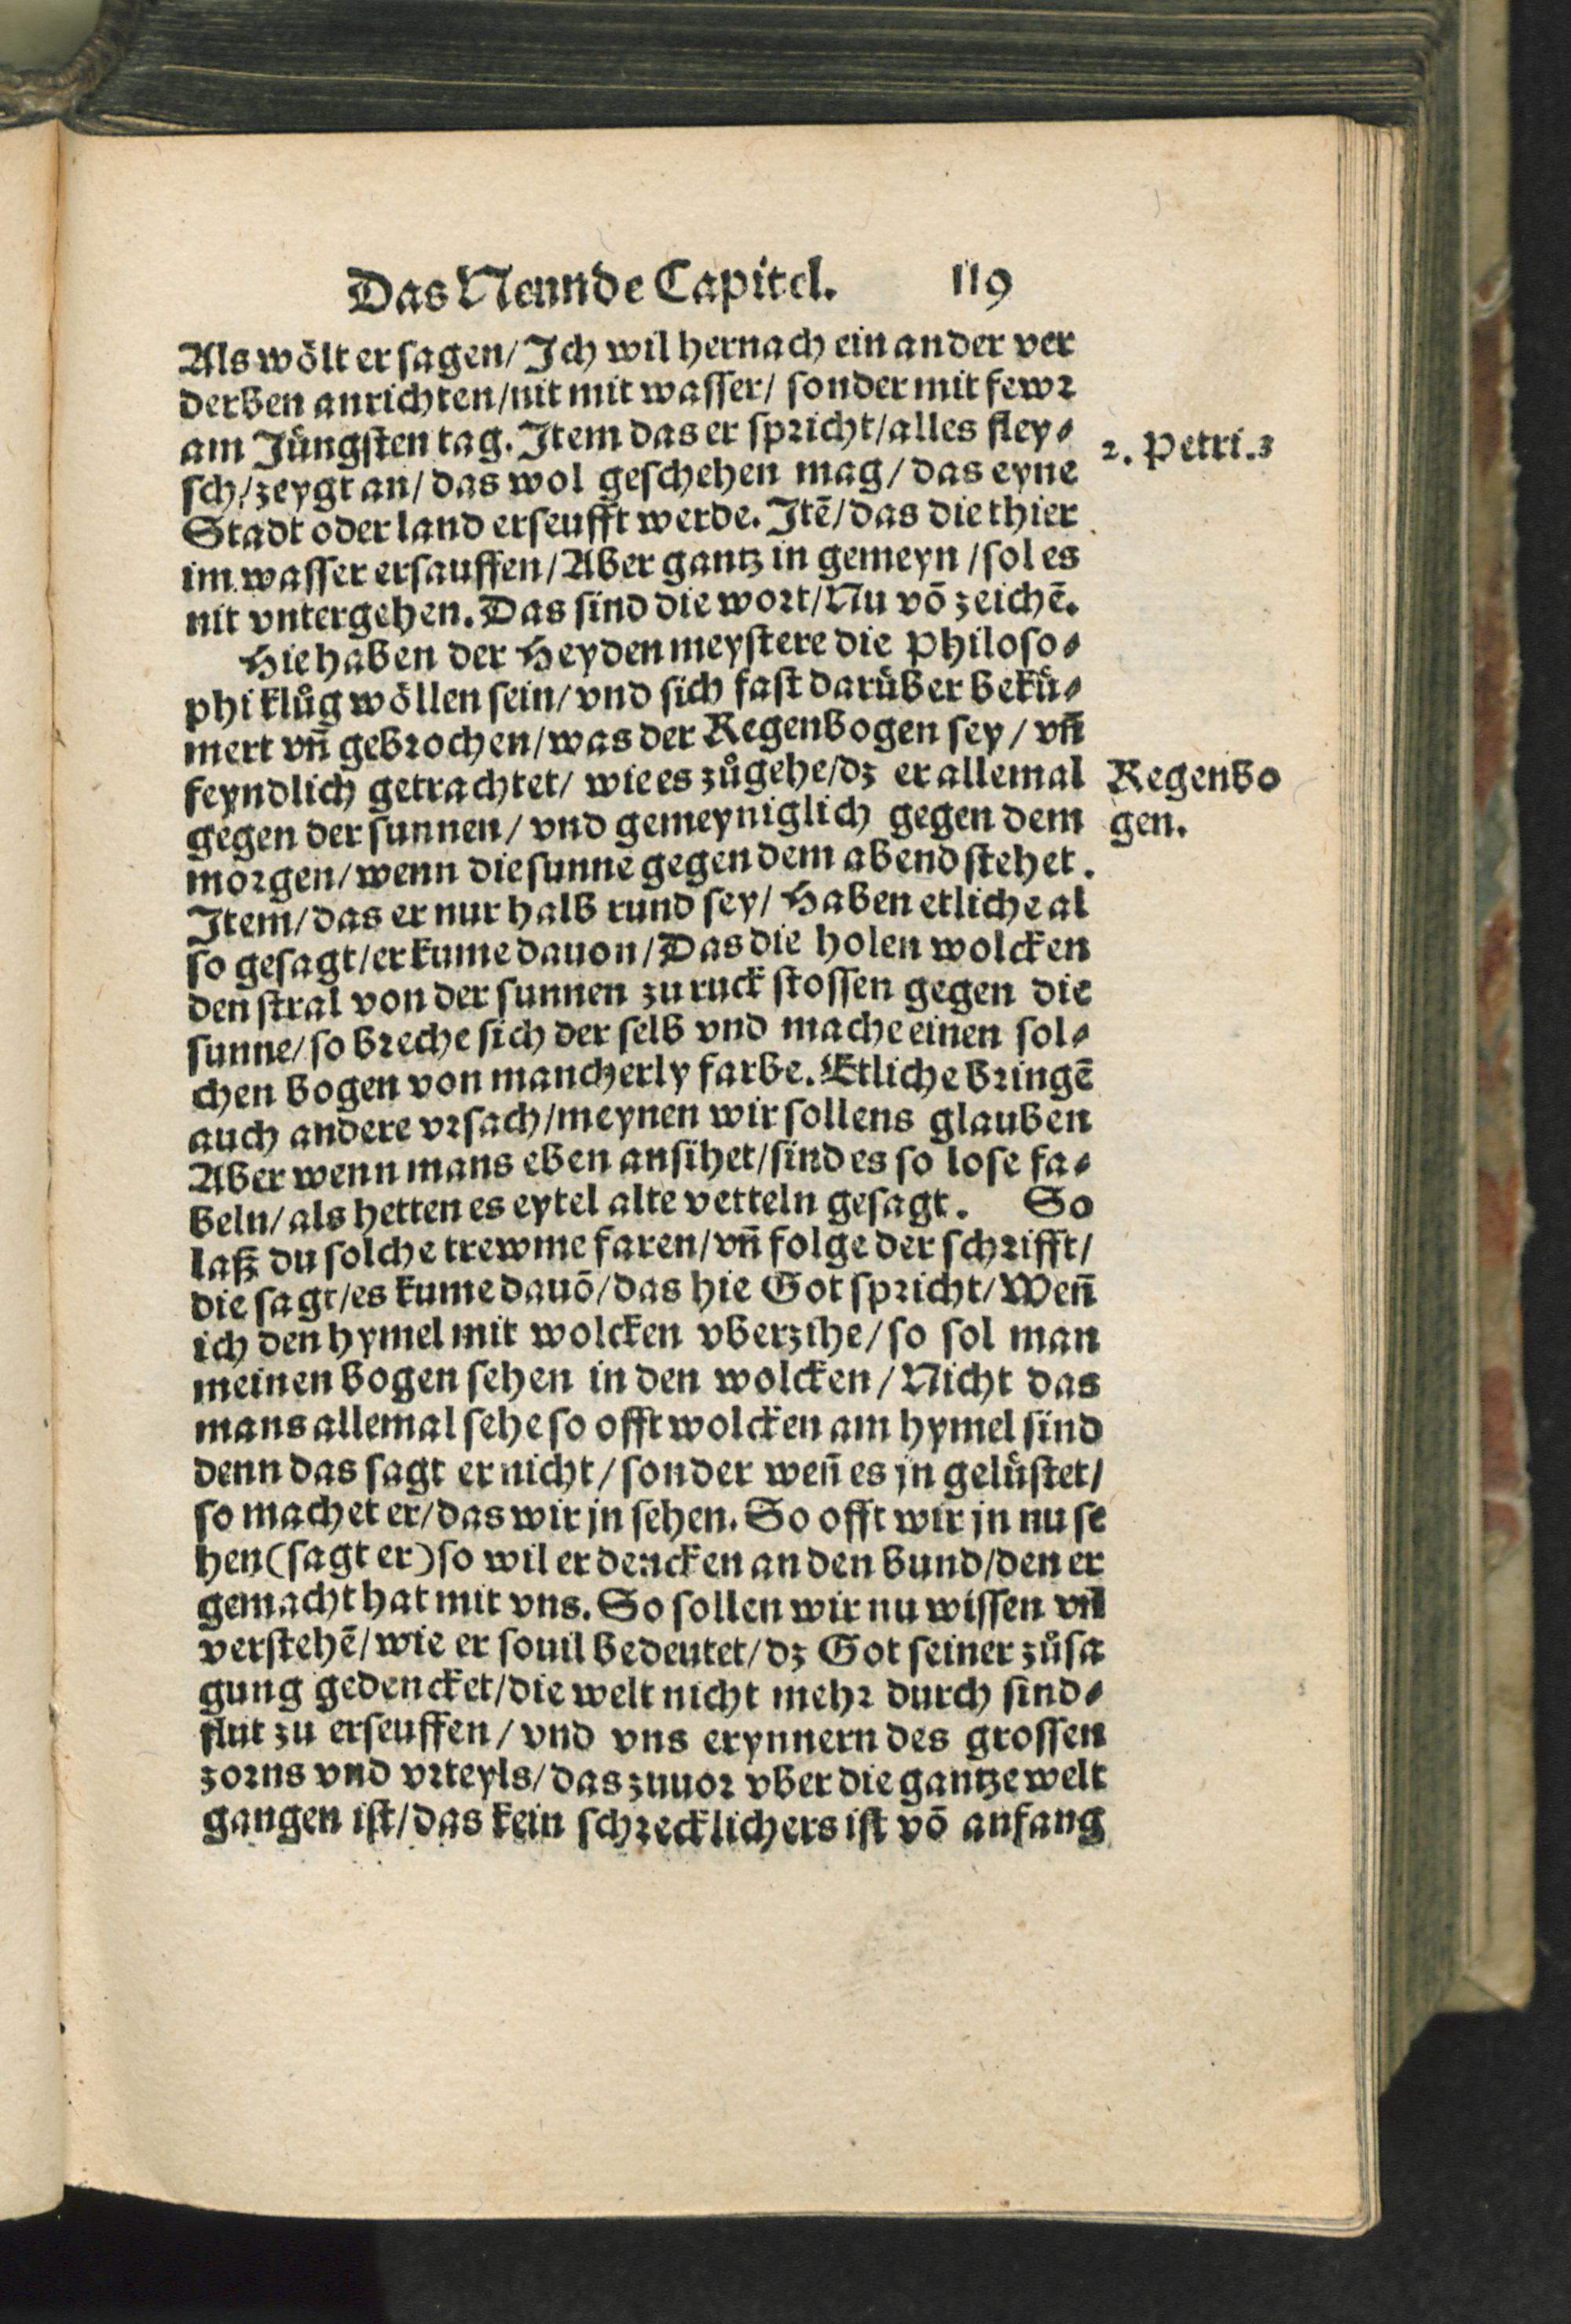 Das Neunde Capitel. 119
Als wölt er sagen/ Ich wil hernach ein ander ver
derben anrichten/nit mit wasser/ sonder mit fewr
am Jüngsten tag. Item das er spricht/alles fley⸗
sch/zeygt an/ das wol geschehen mag/ das eyne
2. Petri.3
Stadt oder land erseufft werde. Itē/das die thier
im wasser ersauffen/Aber gantz in gemeyn/sol es
nit vntergehen. Das sind die wort/Nu vō zeichē.
Hie haben der Heyden meystere die Philoso⸗
phi klůg wöllen sein/ vnd sich fast darüber bekü⸗
mert vñ gebrochen/was der Regenbogen sey/ vñ
feyndlich getrachtet/ wie es zůgehe/dz er allemal
gegen der sunnen/ vnd gemeyniglich gegen dem
Regenbo
gen.
morgen/wenn die sunne gegen dem abend stehet.
Item/das er nur halb rund sey/ Haben etliche al
so gesagt/er kume dauon/Das die holen wolcken
den stral von der sunnen zu ruck stossen gegen die
sunne/so breche sich der selb vnd mache einen sol⸗
chen bogen von mancherly farbe. Etliche bringē
auch andere vrsach/meynen wir sollens glauben
Aber wenn mans eben ansihet/sind es so lose fa⸗
beln/als hetten es eytel alte vetteln gesagt. So
laß du solche trewme faren/vñ folge der schrifft/
die sagt/es kume dauō/das hie Got spricht/Weñ
ich den hymel mit wolcken vberzihe/so sol man
meinen bogen sehen in den wolcken/Nicht das
mans allemal sehe so offt wolcken am hymel sind
denn das sagt er nicht/sonder weñ es jn gelüstet/
so machet er/das wir jn sehen. So offt wir jn nu se
hen(sagt er)so wil er dencken an den bund/den er
gemacht hat mit vns. So sollen wir nu wissen vñ
verstehē/wie er souil bedeutet/dz Got seiner zůsa
gung gedencket/die welt nicht mehr durch sind⸗
flut zu erseuffen/vnd vns erynnern des grossen
zorns vnd vrteyls/das zuuor vber die gantze welt
gangen ist/das kein schrecklichers ist vō anfang